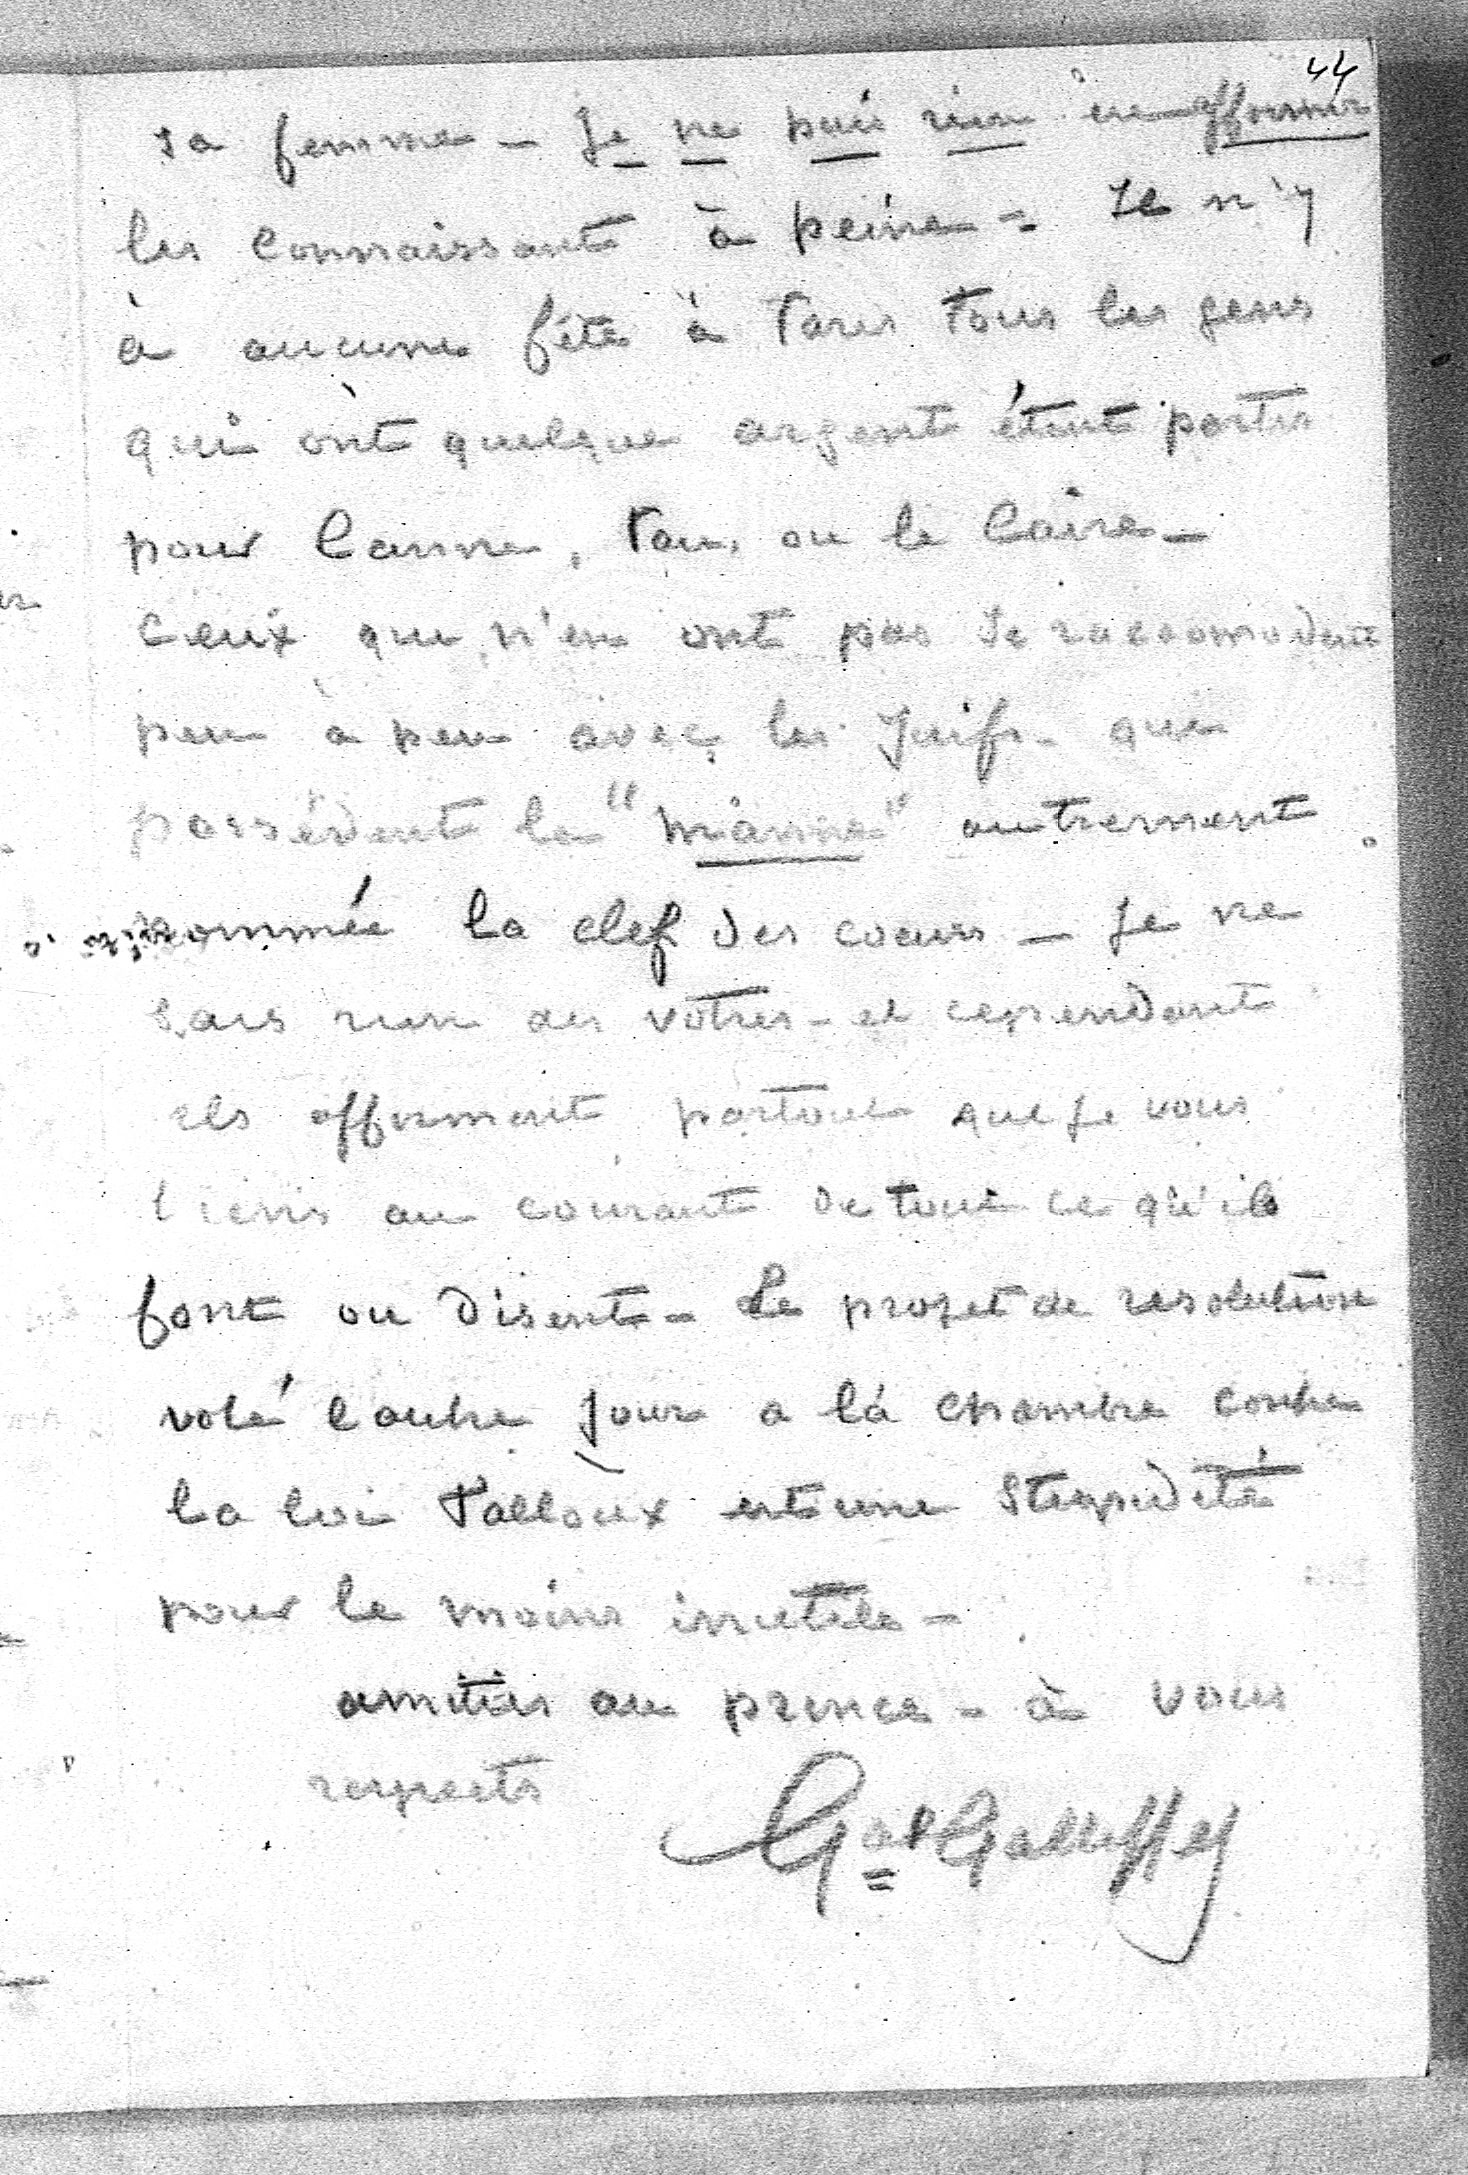 44
sa femme - Je ne puis rien en affirmer
les connaissant à peine - Il n'y
à aucune fête à Paris tous les gens
qui ont quelque argent étant partis
pour Canne, Pau, ou le Caire -
Ceux qui n'en ont pas se raccomodent
peu à peu avec les Juifs - qui
possèdent la "manne" autrement
nommée la clef des coeurs - Je ne
sais rien des votres - et cependant
ils affirment partout que je vous
tiens au courant de tout ce qu'ils
font ou disent - Le projet de resolution
voté l'autre jour a la chambre contre
la loi Falloux est une stupidité
pour le moins inutile -
amitiés au prince - à vous
respects
Gal Galliffet